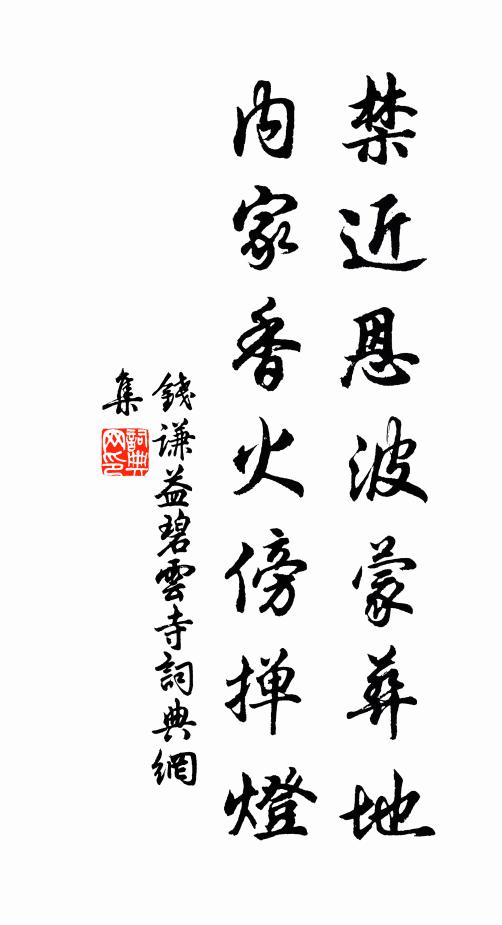 禁近恩波蒙葬地
内家香火傍禅燈
錢謙益碧雲寺詞典網
集
詞典网印